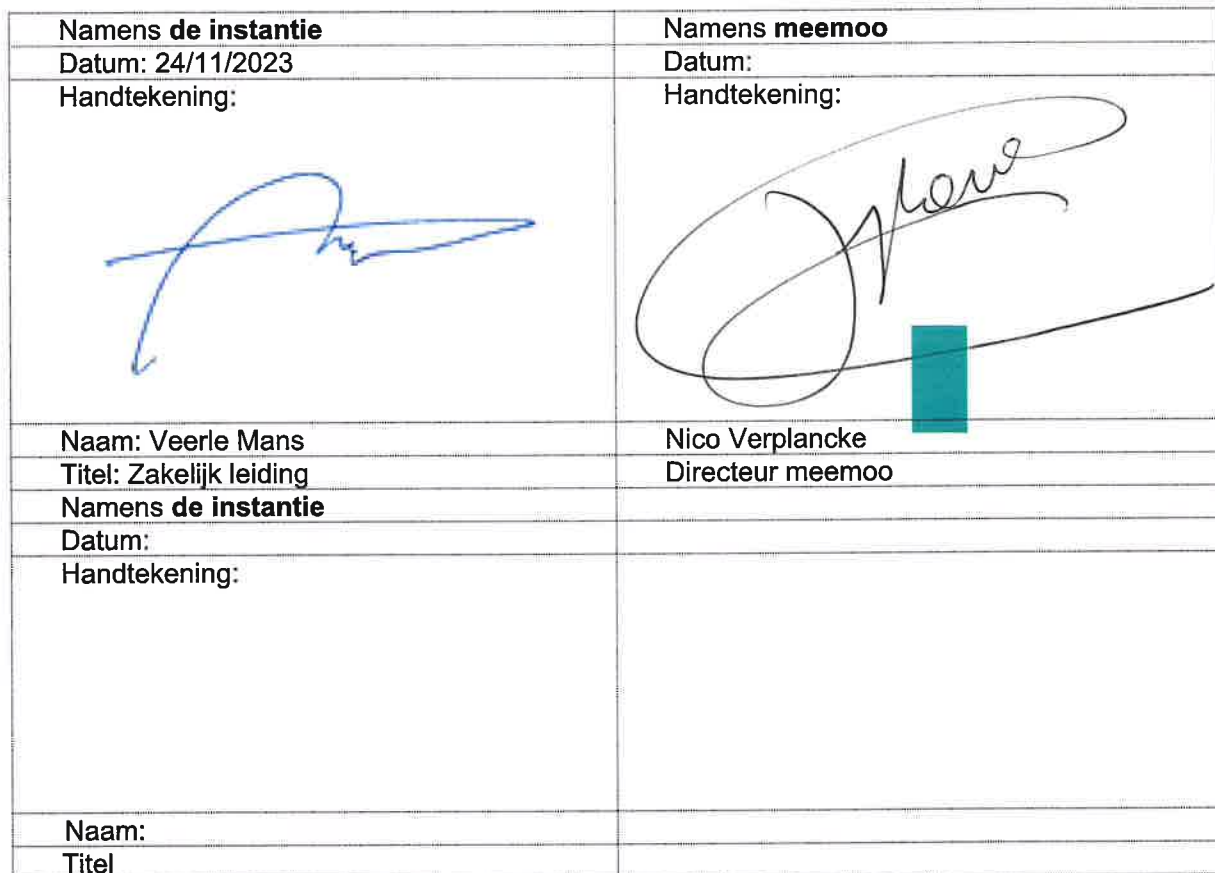 Namens de instantie
Namens meemoo
Datum: 24/11/2023
Datum:
Handtekening:
Handtekening:
Naam: Veerle Mans
Nico Verplancke
Titel: Zakelijk leiding
Directeur meemoo
Namens de instantie
Datum:
Handtekening:
Naam:
Titel